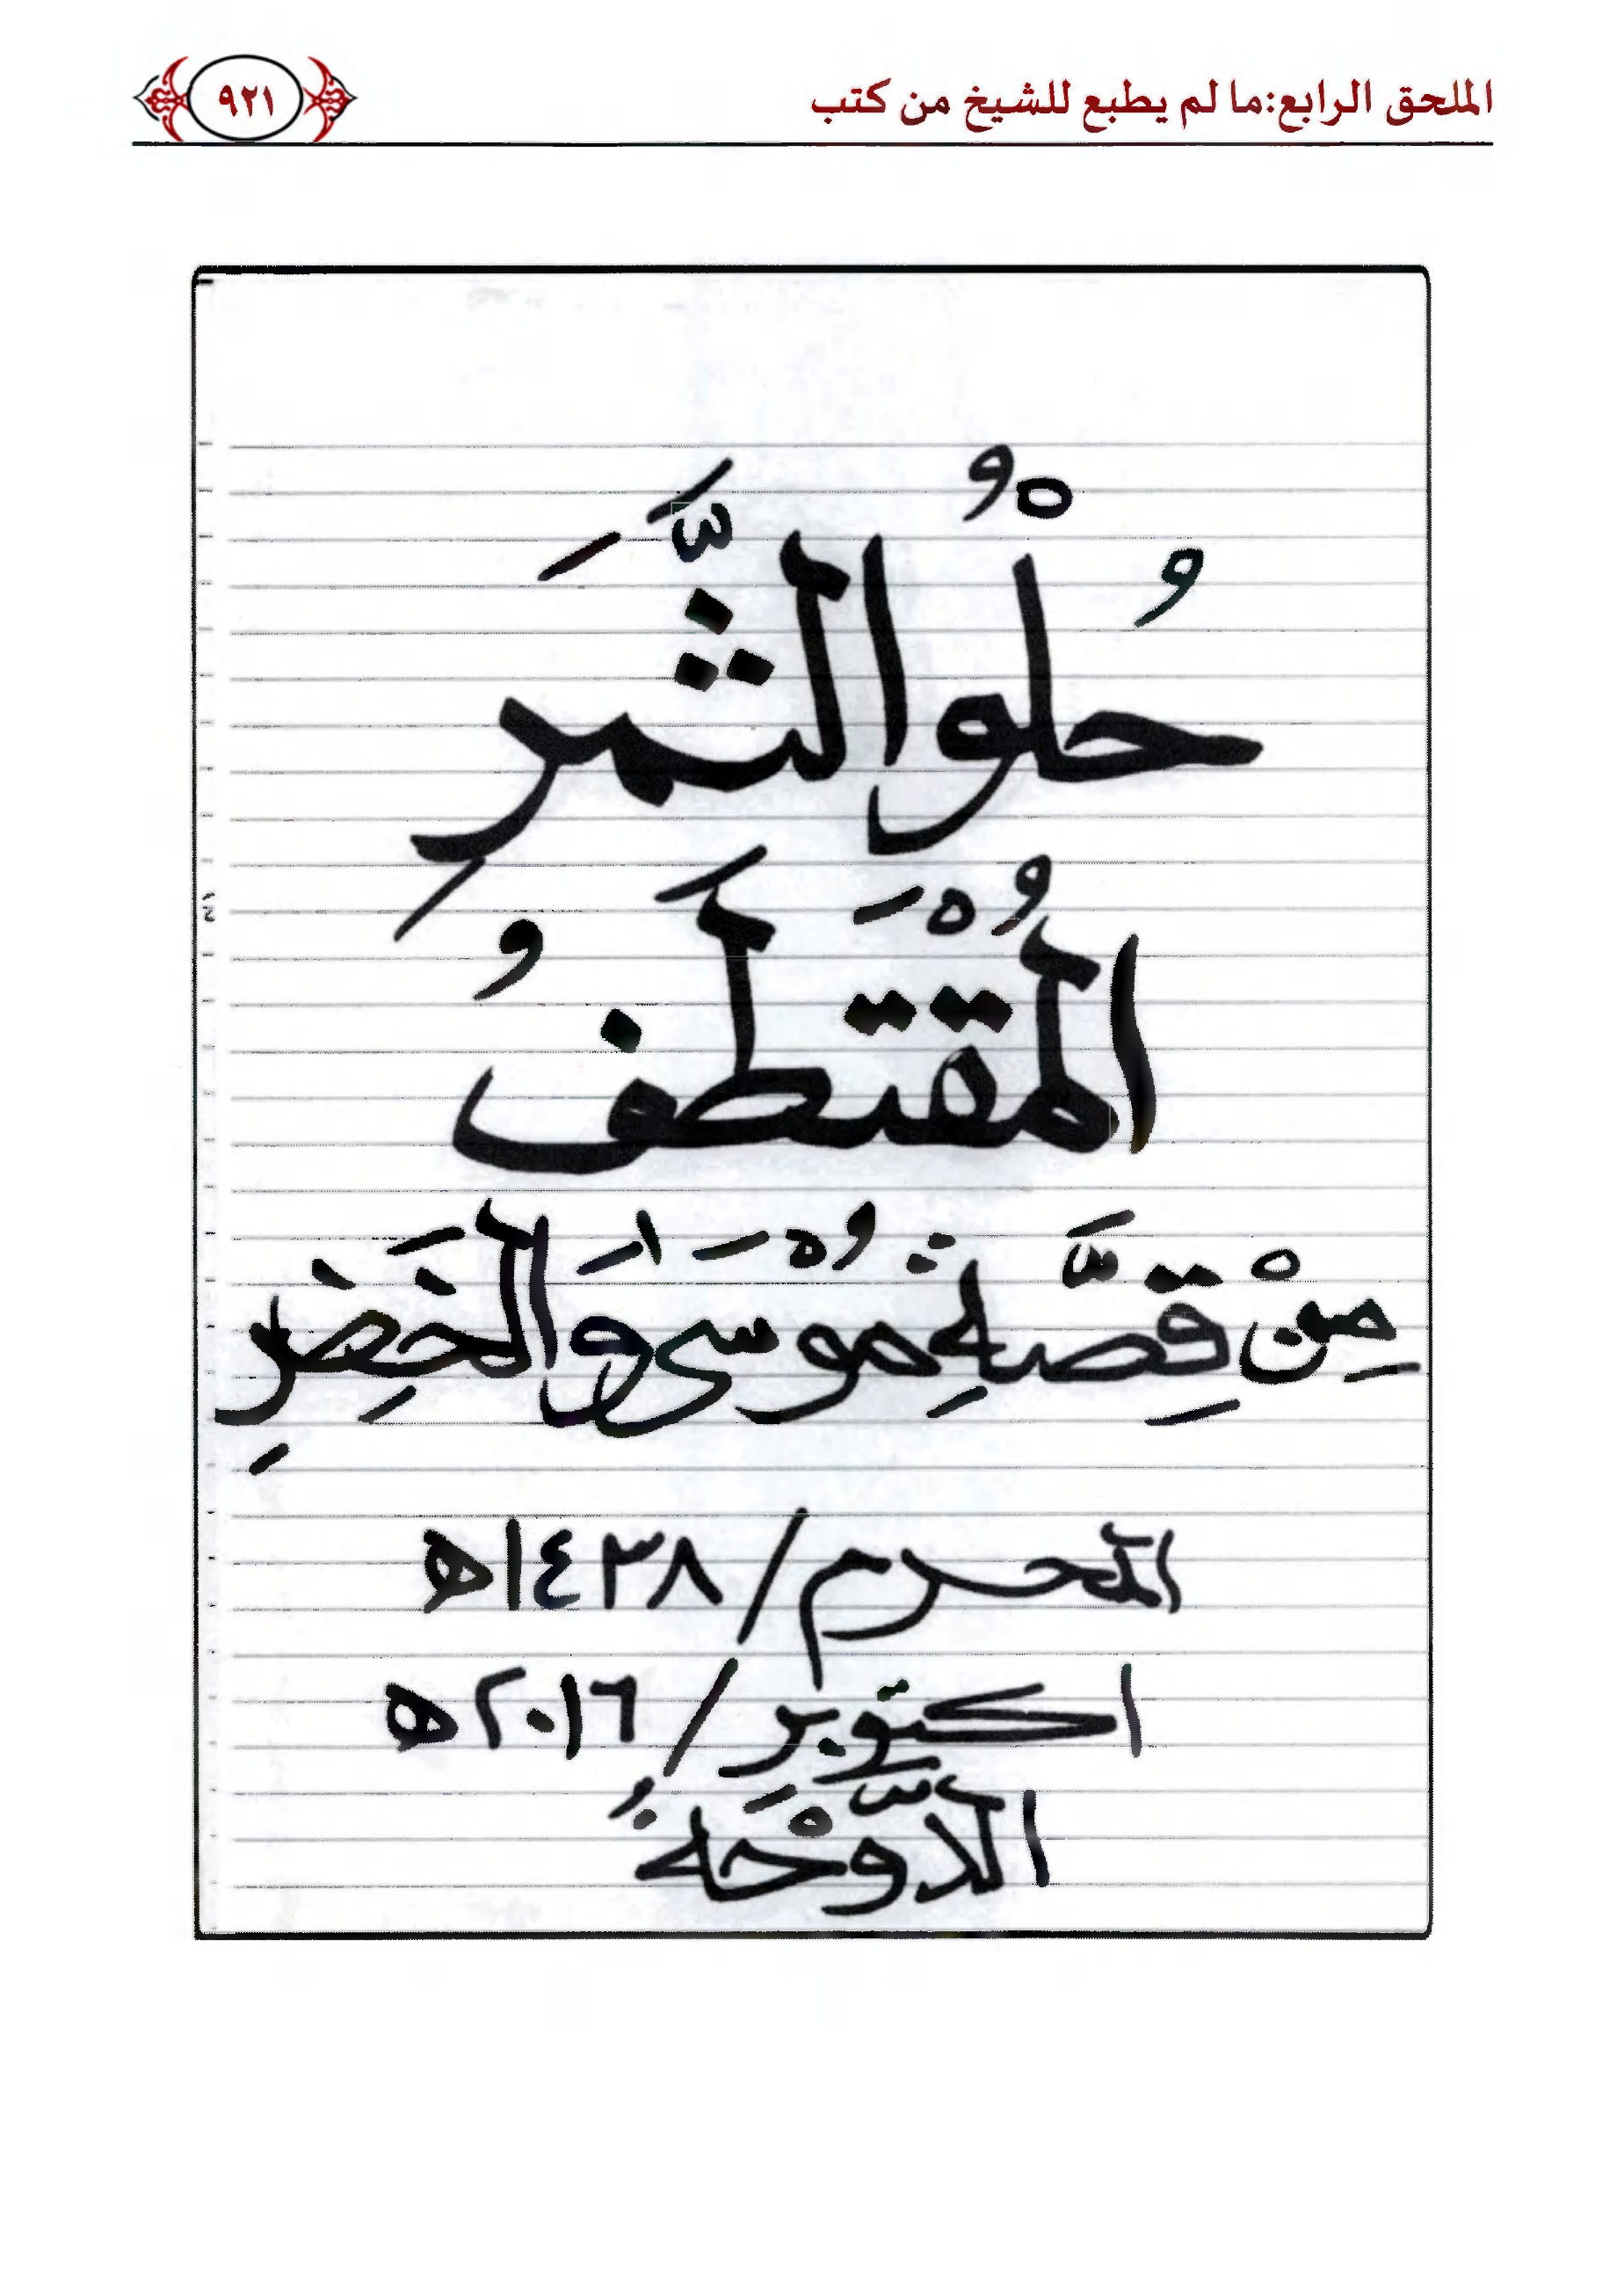 الملحق الرابع:ما لم يطبع للشيخ من كتب
٩٢١
حُلْوُ الثَّمَرِ
المُقْتَطَفُ
مِنْ قِصَّةِ مُوْسَى وَالخَضِرِ
المحرم/١٤٣٨ه
اكتوبر/٢٠١٦ه
الدَّوْحَةُ